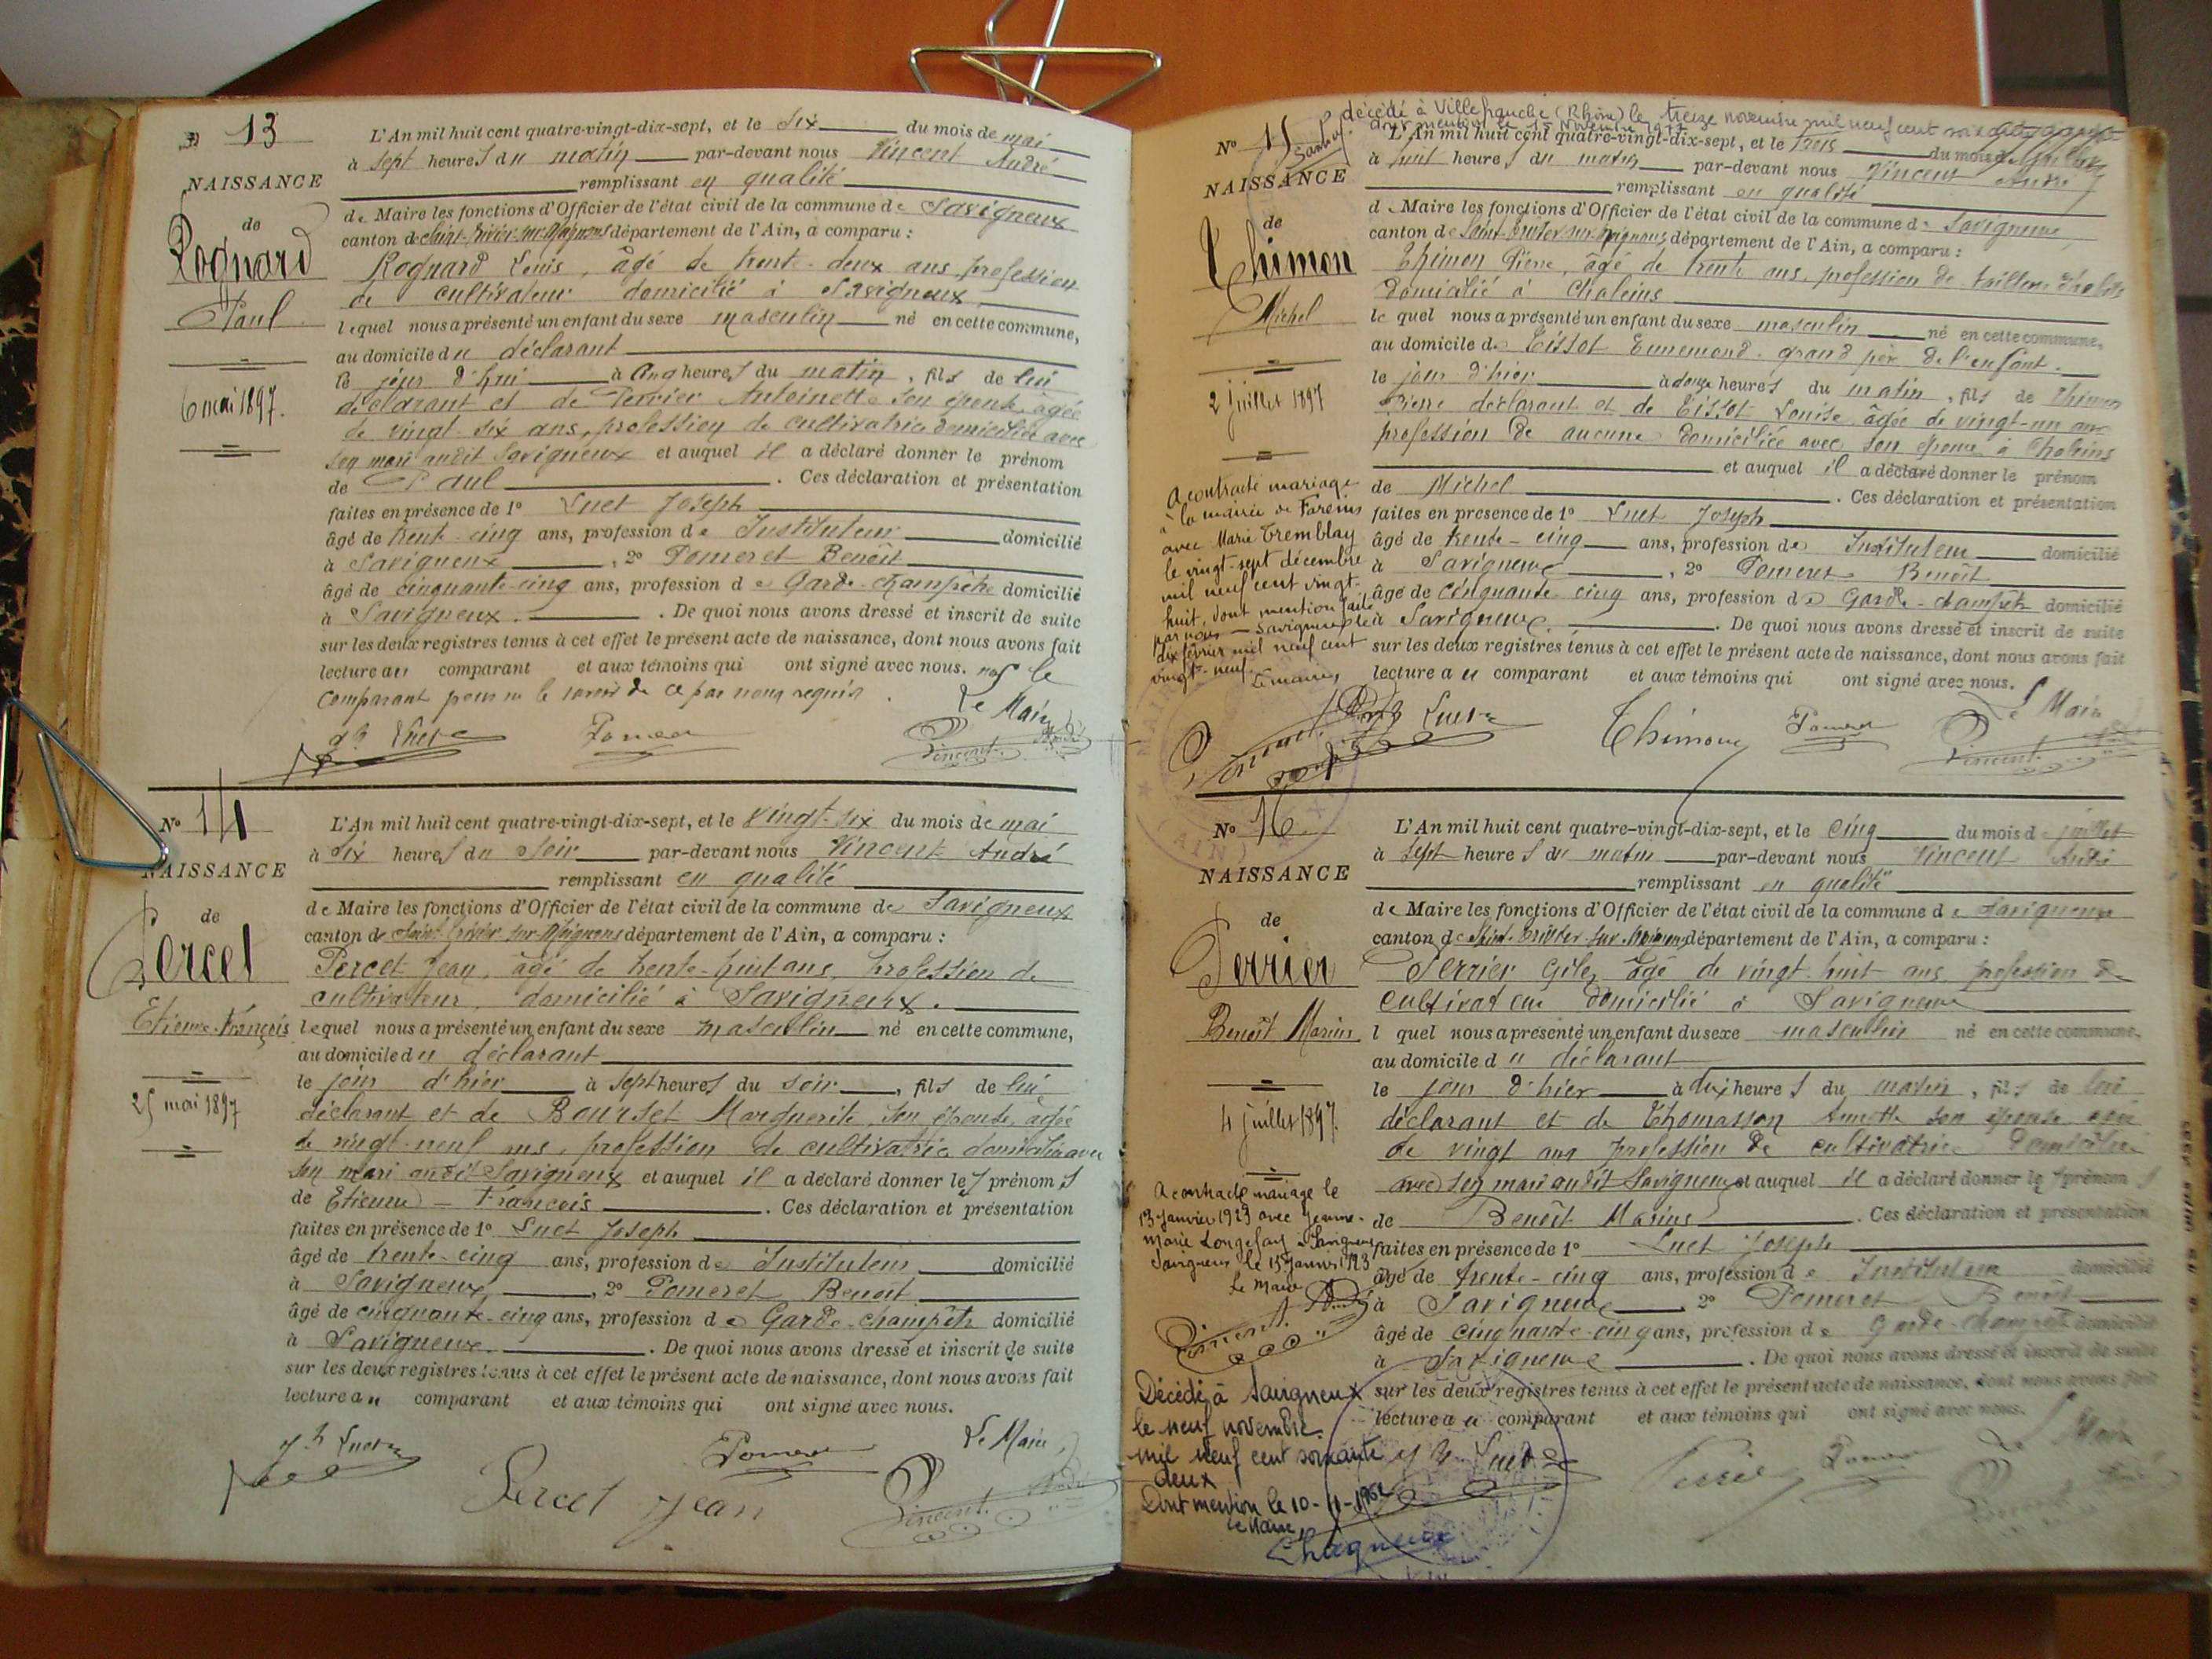 13
NAISSANCE
de
Rognard
Paul
6 mai 1897.
L'An mil huit cent quatre-vingt-dix-sept, et le six du mois de mai
à sept heures du matin par-devant nous Vincent André
remplissant en qualité
de Maire les fonctions d'Officier de l'état civil de la commune de Savigneux
canton de Saint-Trivier-sur-Moignans département de l'Ain, a comparu :
Rognard Louis, âgé de trente-deux ans, profession
de cultivateur domicilié à Savigneux,
lequel nous a présenté un enfant du sexe masculin né en cette commune,
au domicile du déclarant
le jour d'hui à cinq heures du matin, fils de lui
déclarant et de Perrier Antoinette son épouse, âgée
de vingt-six ans, profession de cultivatrice domiciliée avec
son mari audit Savigneux et auquel il a déclaré donner le prénom
de Paul. Ces déclaration et présentation
faites en présence de 1° Luet Joseph
âgé de trente-cinq ans, profession de Instituteur domicilié
à Savigneux, 2° Pomeret Benoît
âgé de cinquante-cinq ans, profession de Garde-champêtre domicilié
à Savigneux. De quoi nous avons dressé et inscrit de suite
sur les deux registres tenus à cet effet le présent acte de naissance, dont nous avons fait
lecture au comparant et aux témoins qui ont signé avec nous. le
comparant pour ne le savoir de ce par nous requis.
Le Maire
Luet Pomeret Vincent André
N° 14
NAISSANCE
de
Percet
Etienne-François
25 mai 1897
L'An mil huit cent quatre-vingt-dix-sept, et le vingt-six du mois de mai
à six heures du soir par-devant nous Vincent André
remplissant en qualité
de Maire les fonctions d'Officier de l'état civil de la commune de Savigneux
canton de Saint-Trivier-sur-Moignans département de l'Ain, a comparu :
Percet Jean, âgé de trente-huit ans, profession de
cultivateur, domicilié à Savigneux.
lequel nous a présenté un enfant du sexe masculin né en cette commune,
au domicile du déclarant
le jour d'hier à sept heures du soir, fils de lui
déclarant et de Bourset Marguerite, son épouse, âgée
de vingt-neuf ans, profession de cultivatrice domiciliée avec
son mari audit Savigneux et auquel il a déclaré donner les prénoms
de Etienne-François. Ces déclaration et présentation
faites en présence de 1° Luet Joseph
âgé de trente-cinq ans, profession de Instituteur domicilié
à Savigneux, 2° Pomeret Benoît
âgé de cinquante-cinq ans, profession de Garde-champêtre domicilié
à Savigneux. De quoi nous avons dressé et inscrit de suite
sur les deux registres tenus à cet effet le présent acte de naissance, dont nous avons fait
lecture au comparant et aux témoins qui ont signé avec nous.
Le Maire
Jh Luet Pomeret
Percet Jean Vincent André
décédé à Villefranche (Rhône) le treize novembre mil neuf cent
N° 15
NAISSANCE
de
Thimon
Michel
2 juillet 1897
A contracté mariage
à la mairie de Fareins
avec Marie Tremblay
le vingt-sept décembre
mil neuf cent vingt-
huit, dont mention faite
par nous Savigneux le
dix février mil neuf cent
vingt-neuf.
Le maire,
L'An mil huit cent quatre-vingt-dix-sept, et le trois du mois de juillet
à huit heures du matin par-devant nous Vincent André
remplissant en qualité
de Maire les fonctions d'Officier de l'état civil de la commune de Savigneux
canton de Saint-Trivier-sur-Moignans, département de l'Ain, a comparu :
Thimon Pierre, âgé de trente ans, profession de tailleur d'habits
domicilié à Chaleins
lequel nous a présenté un enfant du sexe masculin né en cette commune,
au domicile de Tissot Ennemond grand père de l'enfant.
le jour d'hier à onze heures du matin, fils de Thimon
Pierre déclarant et de Tissot Louise âgée de vingt-un ans
profession de aucune domiciliée avec son époux à Chaleins
et auquel il a déclaré donner le prénom
de Michel. Ces déclaration et présentation
faites en présence de 1° Luet Joseph
âgé de trente-cinq ans, profession de Instituteur domicilié
à Savigneux, 2° Pomeret Benoît
âgé de cinquante cinq ans, profession de Garde-champêtre domicilié
à Savigneux. De quoi nous avons dressé et inscrit de suite
sur les deux registres tenus à cet effet le présent acte de naissance, dont nous avons fait
lecture au comparant et aux témoins qui ont signé avec nous.
Le Maire
Luet Thimon Pomeret Vincent
N° 16
NAISSANCE
de
Perrier
Benoît Marius
4 juillet 1897.
A contracté mariage le
13 janvier 1923 avec Jeanne-
Marie Longefay à Savigneux
Savigneux le 15 janvier 1923
Le Maire
Vincent André
Décédé à Savigneux
le neuf novembre
mil neuf cent soixante
deux
Dont mention le 10-11-1962
Le Maire,
Chagneux
L'An mil huit cent quatre-vingt-dix-sept, et le cinq du mois de juillet
à sept heures du matin par-devant nous Vincent André
remplissant en qualité
de Maire les fonctions d'Officier de l'état civil de la commune de Savigneux
canton de Saint-Trivier-sur-Moignans département de l'Ain, a comparu :
Perrier Giles âgé de vingt huit ans profession de
cultivateur domicilié à Savigneux
lequel nous a présenté un enfant du sexe masculin né en cette commune,
au domicile du déclarant
le jour d'hier à dix heures du matin, fils de lui
déclarant et de Thomasson Annette son épouse âgée
de vingt ans profession de cultivatrice domiciliée
avec son mari audit Savigneux et auquel il a déclaré donner les prénoms
de Benoît Marius. Ces déclaration et présentation
faites en présence de 1° Luet Joseph
âgé de trente-cinq ans, profession de Instituteur domicilié
à Savigneux, 2° Pomeret Benoît
âgé de cinquante-cinq ans, profession de Garde-champêtre domicilié
à Savigneux. De quoi nous avons dressé et inscrit de suite
sur les deux registres tenus à cet effet le présent acte de naissance, dont nous avons fait
lecture au comparant et aux témoins qui ont signé avec nous.
Le Maire
Luet Perrier Pomeret